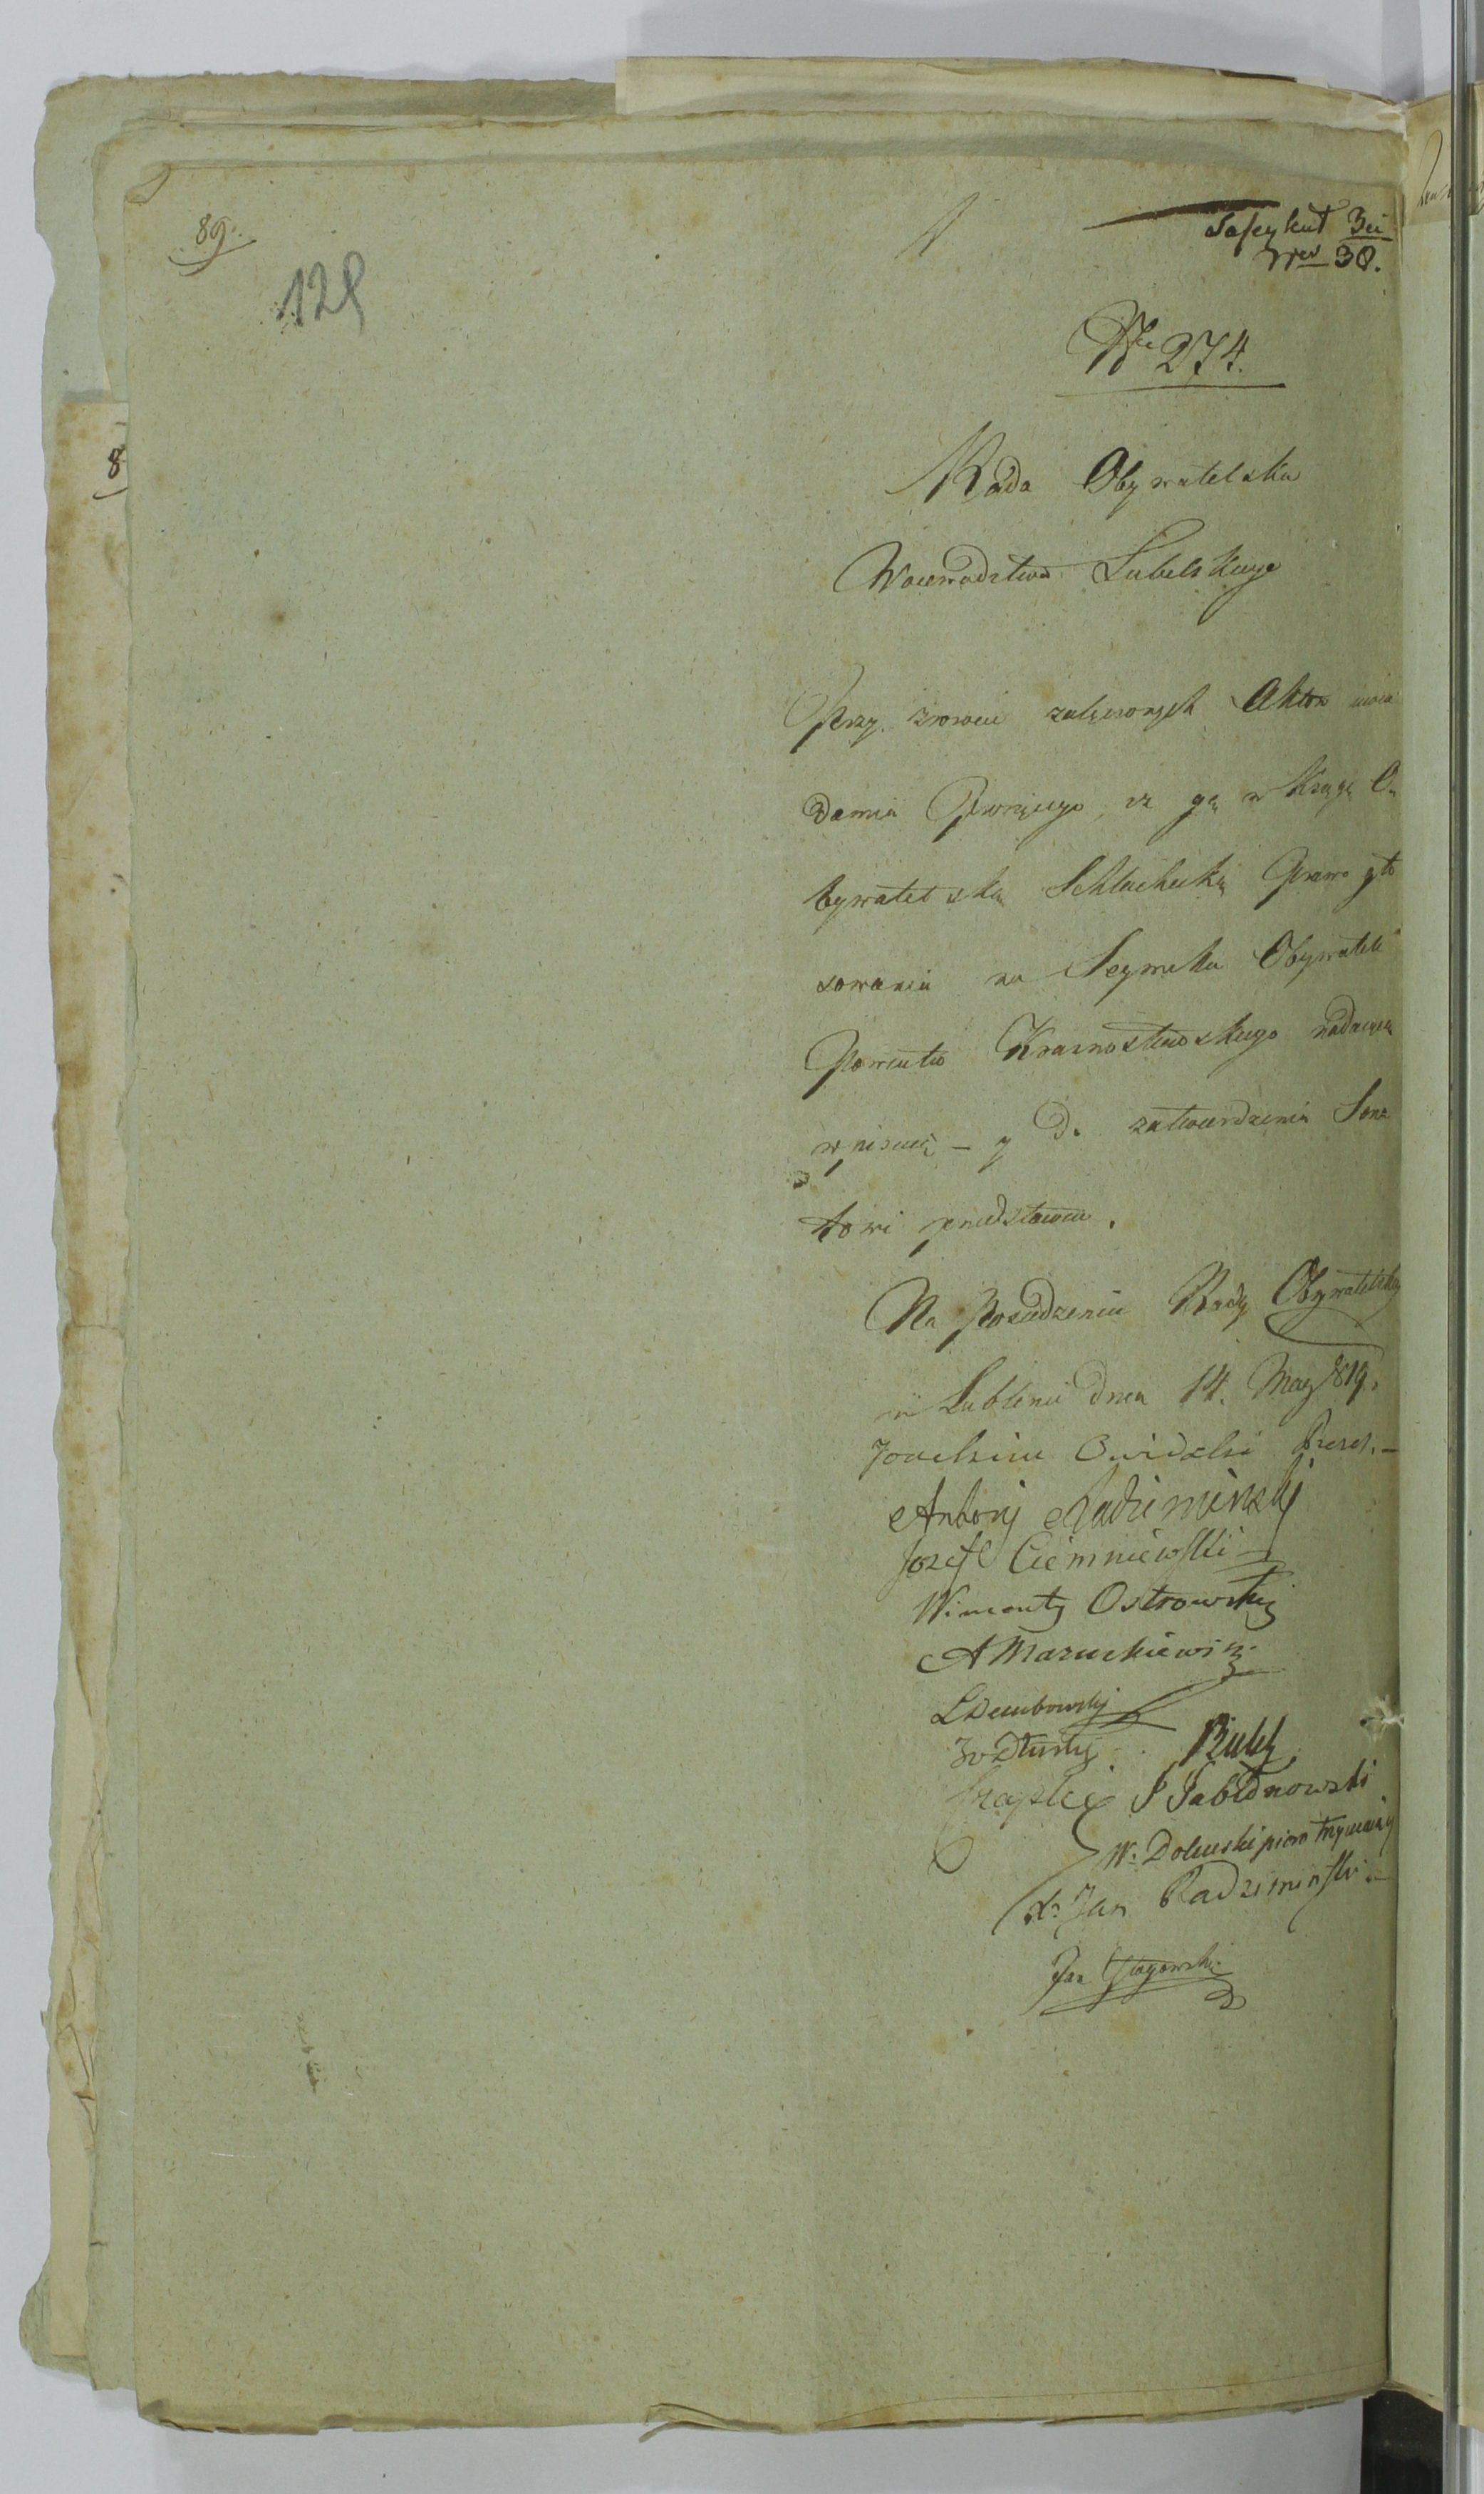 89.
128
Fascykuł 3ci
Nro 30.
Nro 274.
8
Rada Obywatelska
Woiewodztwa Lubelskiego
Przy zwrocie załączonych Aktow uwia
damia Proszącego, iż go w Księgę O
bywatelską Schlachecką Prawo gło
sowania na Seymiku Obywateli
Powiatu Krasnostawskiego nadaiącą
wpisuie - y do zatwierdzenia Sena
towi przedstawia.
Na Posiedzeniu Rady Obywatelskiey
w Lublinie dnia 14. May 819.
Joachim Owidzki Prezes.
Antoni Radziminski
Jozef Ciemniewski
Wincenty Ostrowski
A Mazurkiewicz
L Dembowski
Jo Dłuski
J Jabłonowski
W. Doluski pioro trzymaiący
X. Jan Radziminski
Jan Głogowski